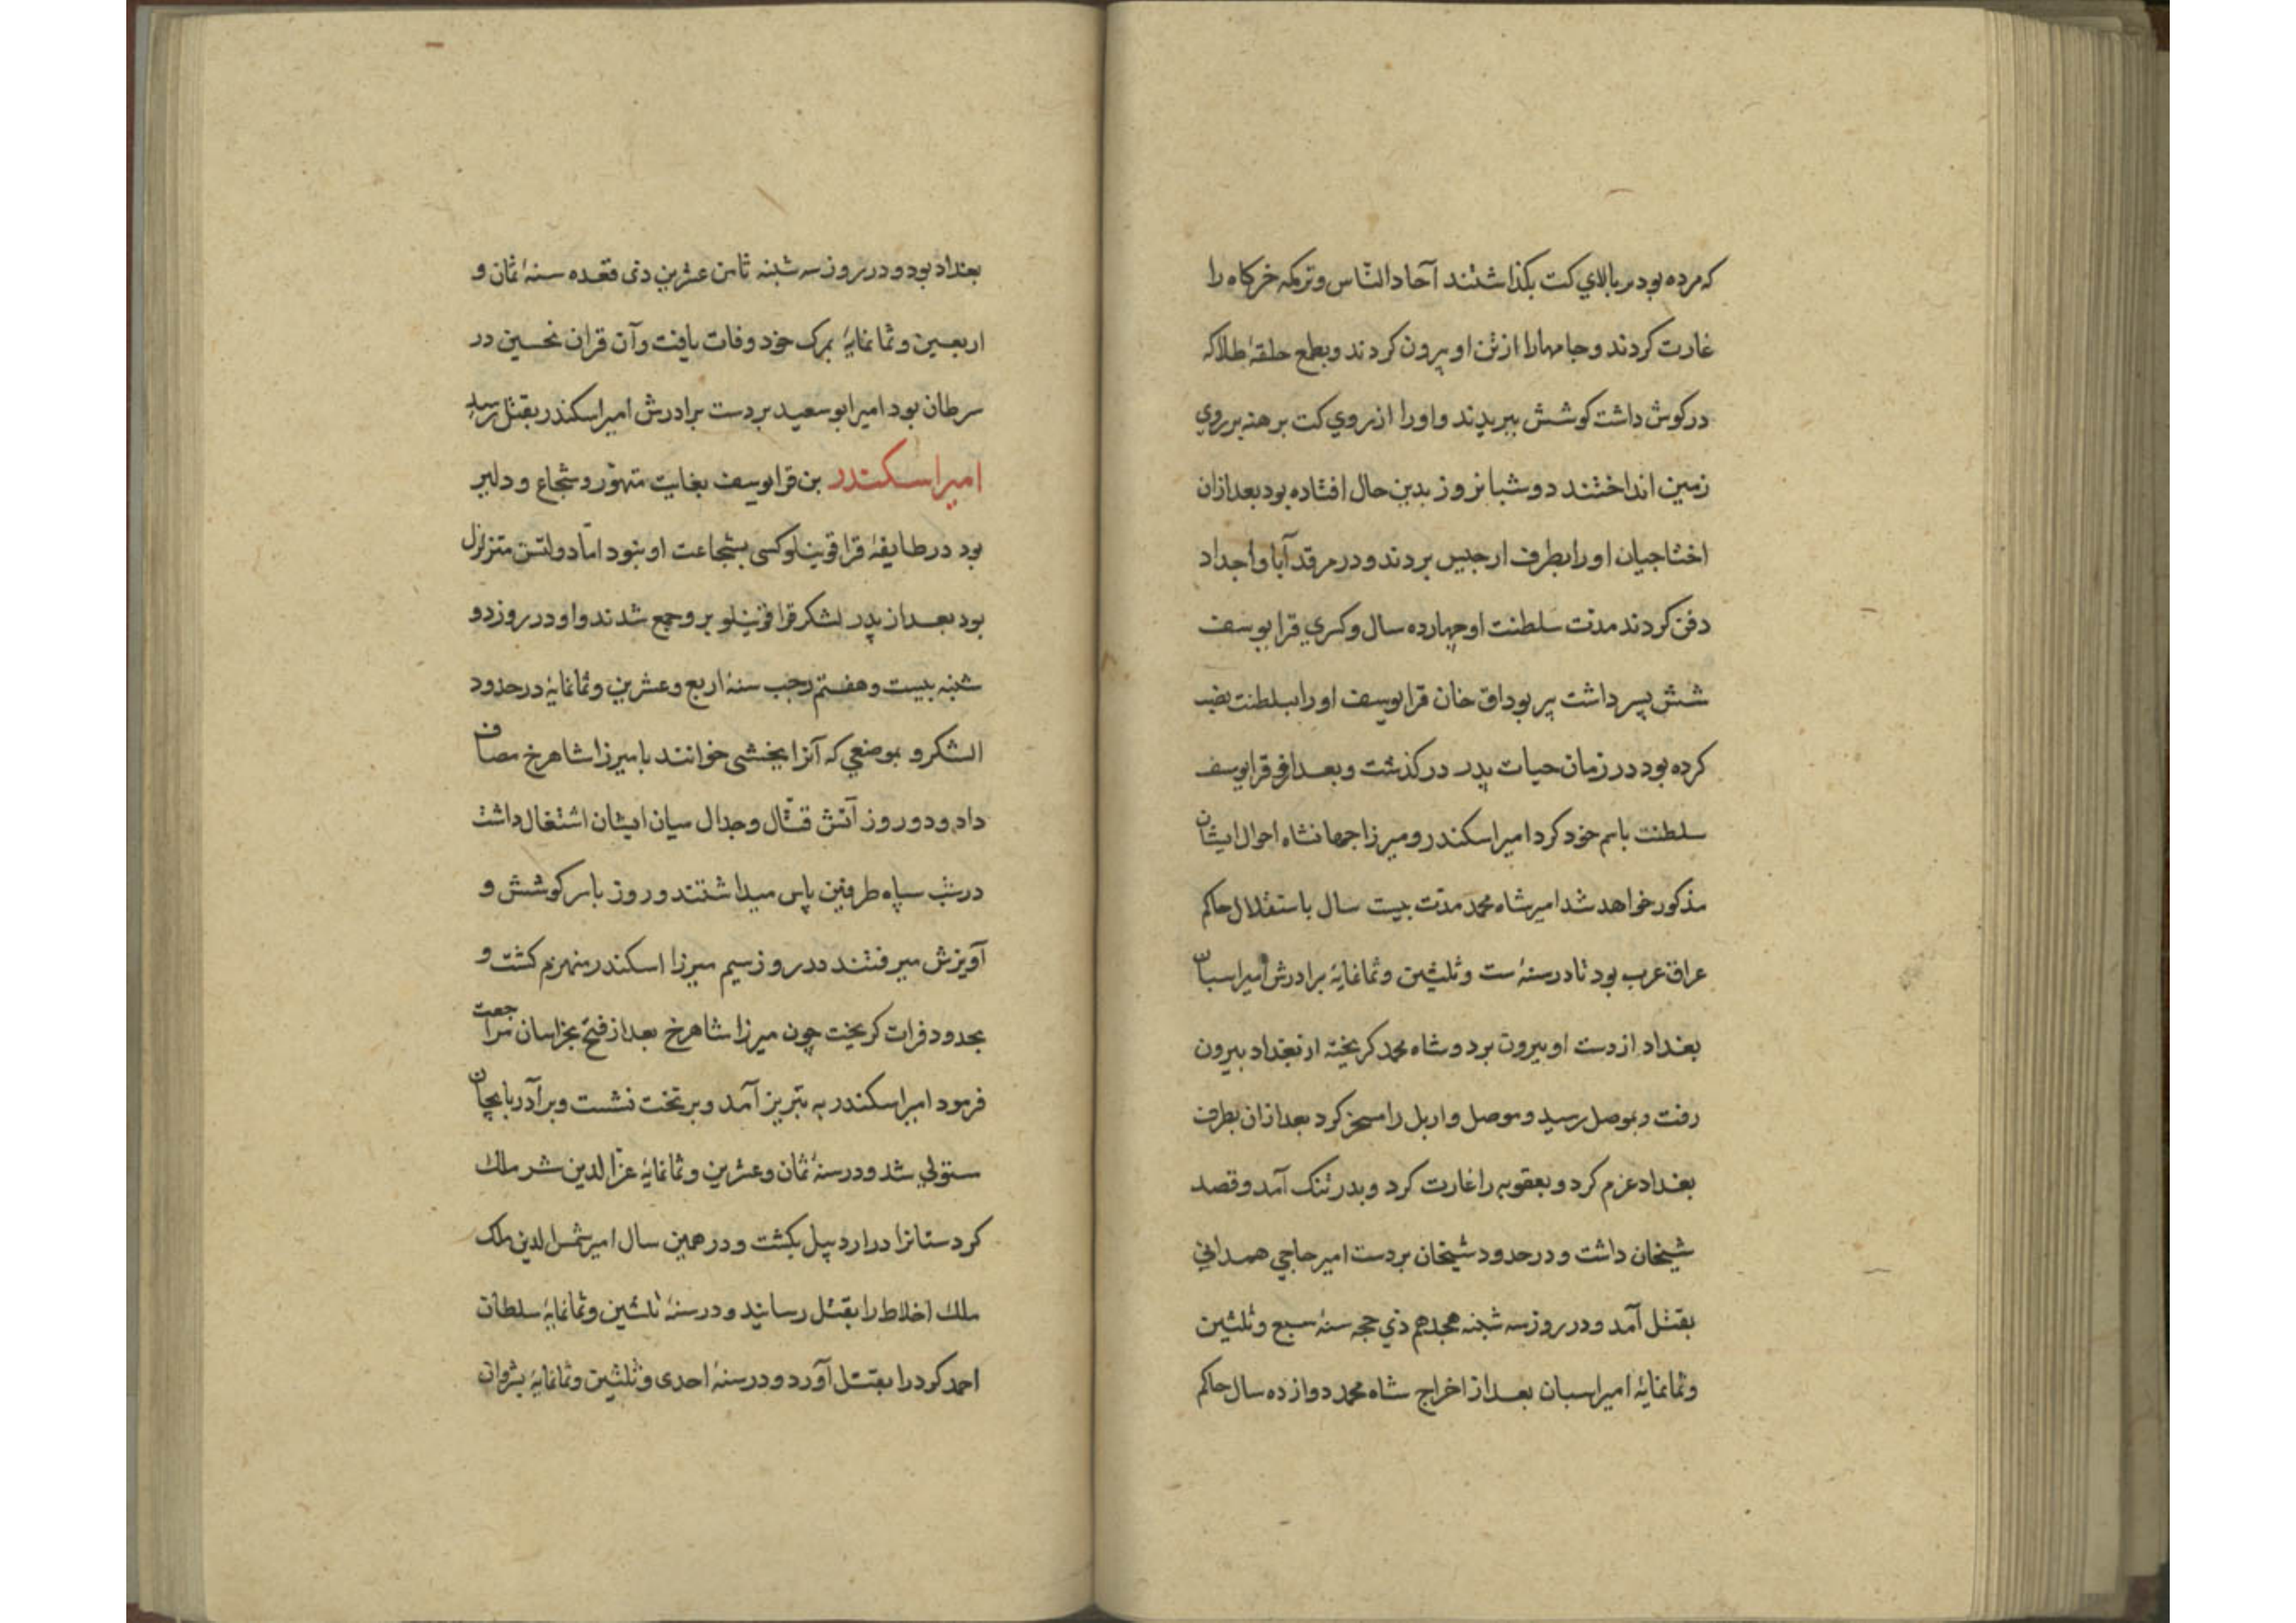 که مرده بود بر بالاي کت بکذاشتند آحاد الناس و ترکمه خرکاه را
غارت کردند و جامهارا از تن او بیرون کردند و بطمع حلقهٔ طلا که
در کوش داشت کوشش ببریدند و اورا از روي کت برهنه بر روي
زمین انداختند دو شبانروز بدین حال افتاده بود بعد ازان
اختاجیان اورا بطرف ارجیس بردند و در مرقد آبا و اجداد
دفن کردند مدت سلطنت او چهارده سال و کسري قرا یوسف
شش پسر داشت پیر بوداق خان قرا یوسف اورا بسلطنت نصب
کرده بود در زمان حیات پدر در کذشت و بعد از فوت قرا یوسف
سلطنت باسم خود کرد امیر اسکندر و میرزا جهانشاه احوال ایشان
مذکور خواهد شد امیر شاه محمد مدت بیست سال باستقلال حاکم
عراق عرب بود تا در سنهٔ ست و ثلثین و ثمانمایهٔ برادرش امیر اسبان
بغداد از دست او بیرون برد و شاه محمد کریخته از بغداد بیرون
رفت و بموصل رسید و موصل و اربل را مسخر کرد بعد ازان بطرف
بغداد عزم کرد و بعقوبه را غارت کرد و بدرتنک آمد و قصد
شیخان داشت و در حدود شیخان بر دست امیر حاجي همداني
بقتل آمد و در روز سه شبنه هجدهم ذي حجه سنهٔ سبع و ثلثین
و ثمانمایهٔ امیر اسبان بعد از اخراج شاه محمد دوازده سال حاکم
بغداد بود و در روز سه شبنه ثامن عشرین ذی قعده سنهٔ ثمان و
اربعین و ثمانمایهٔ بمرک خود وفات یافت و آن قران نحسین در
سرطان بود امیر ابو سعید بر دست برادرش امیر اسکندر بقتل رسید
امیر اسکندر بن قرا یوسف بغایت متهوّر و شجاع و دلیر
بود در طایفهٔ قرا قوینلو کسی بشجاعت او نبود امّا دولتش متزلزل
بود بعد از پدر لشکر قرا قوینلو برو جمع شدند و او در روز دو
شبنه بیست و هفتم رجب سنهٔ اربع و عشرین و ثمانمایهٔ در حدود
الشکرو بموضعي که آنرا بخشی خوانند با میرزا شاهرخ مصاف
داد و دو روز آتش قتّال و جدال میان ایشان اشتغال داشت
در شب سپاه طرفین پاس میداشتند و روز باسر کوشش و
آویزش میرفتند در روز سیم میرزا اسکندر منهزم کشت و
بحدود فرات کریخت چون میرزا شاهرخ بعد از فتح بخراسان مراجعت
فرمود امیر اسکندر به تبریز آمد و بر تخت نشست و بر آذربایجان
مستولي شد و در سنهٔ ثمان و عشرین و ثمانمایهٔ عزّ الدین شر ملک
کردستانرا در اردبیل بکشت و در همین سال امیر شمس الدین ملک
ملک اخلاط را بقتل رسانید و در سنهٔ ثلثین و ثمانمایهٔ سلطان
احمد کورد را بقتل آورد و در سنهٔ احدی و ثلثین و ثمانمایهٔ بشروان